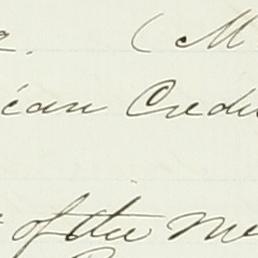 ( M
ican Credi
of the Me